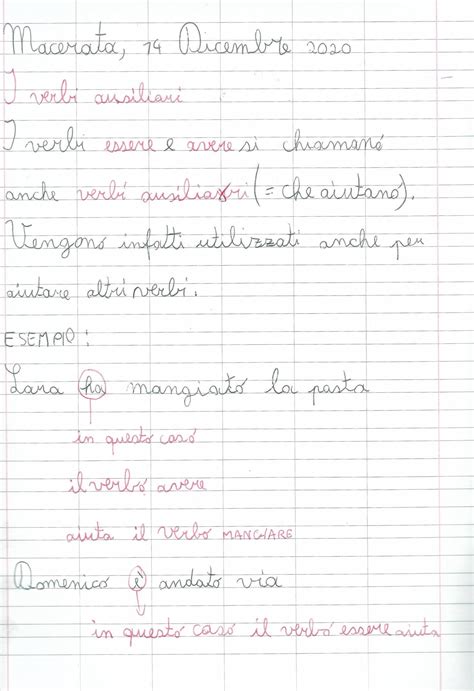 Macerata, 14 Dicembre 2020
I verbi ausiliari
I verbi essere e avere si chiamano
anche verbi ausiliari (= che aiutano).
Vengono infatti utilizzati anche per
aiutare altri verbi.
ESEMPIO:
Lara ha mangiato la pasta
in questo caso
il verbo avere
aiuta il verbo MANGIARE
Domenico è andato via
in questo caso il verbo essere aiuta